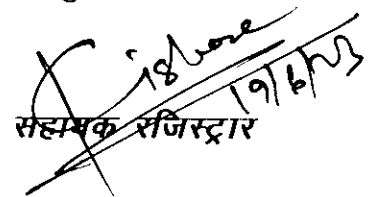 19/6/23
सहायक रजिस्ट्रार